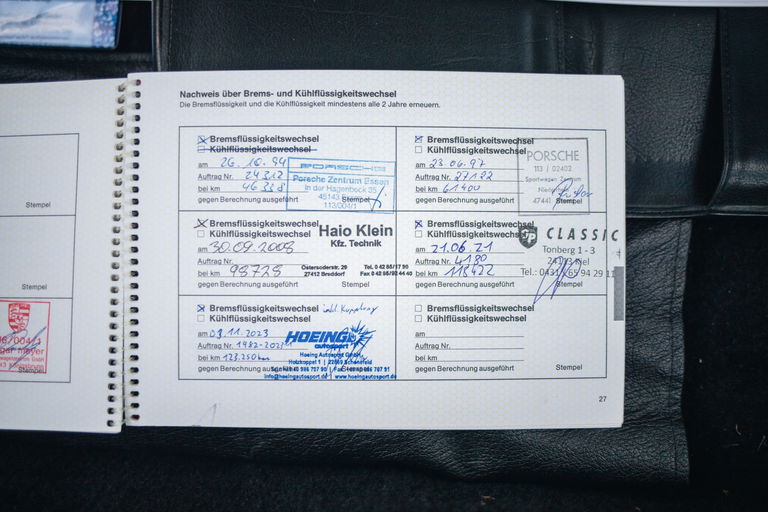 Nachweis über Brems- und Kühlflüssigkeitswechsel
Die Bremsflüssigkeit und die Kühlflüssigkeit mindestens alle 2 Jahre erneuern.
Bremsflüssigkeitswechsel
Kühlflüssigkeitswechsel
am 26.10.94
Auftrag Nr. 24312
bei km 46338
gegen Berechnung ausgeführt
Stempel
PORSCHE
Porsche Zentrum Essen
In der Hagenbeck 35
45143 Essen
113/004/1
Bremsflüssigkeitswechsel
Kühlflüssigkeitswechsel
am 23.06.97
Auftrag Nr. 27122
bei km 61400
gegen Berechnung ausgeführt
Stempel
PORSCHE
113 / 02402
Sportwagen Zentrum
47441
Bremsflüssigkeitswechsel
Kühlflüssigkeitswechsel
am 30.09.2008
bei km 98725
gegen Berechnung ausgeführt
Stempel
Haio Klein
Kfz. Technik
Ostersoderstr. 29
27412 Breddorf
Bremsflüssigkeitswechsel
Kühlflüssigkeitswechsel
am 21.06.21
Auftrag Nr. 4180
bei km 118422
gegen Berechnung ausgeführt
Stempel
CLASSIC
Tonberg 1 - 3
24113 Kiel
Tel.: 0431 65 94 29 11
Bremsflüssigkeitswechsel inkl. Kupplung
Kühlflüssigkeitswechsel
am 03.11.2023
Auftrag Nr. 1482-2023
bei km 123.250km
gegen Berechnung ausgeführt
Stempel
HOEING
autosport
Hoeing Autosport GmbH
Holzkoppel 1 | 22869 Schenefeld
info@hoeingautosport.de | www.hoeingautosport.de
Bremsflüssigkeitswechsel
Kühlflüssigkeitswechsel
am
Auftrag Nr.
bei km
gegen Berechnung ausgeführt
Stempel
27
Stempel
Stempel
Stempel